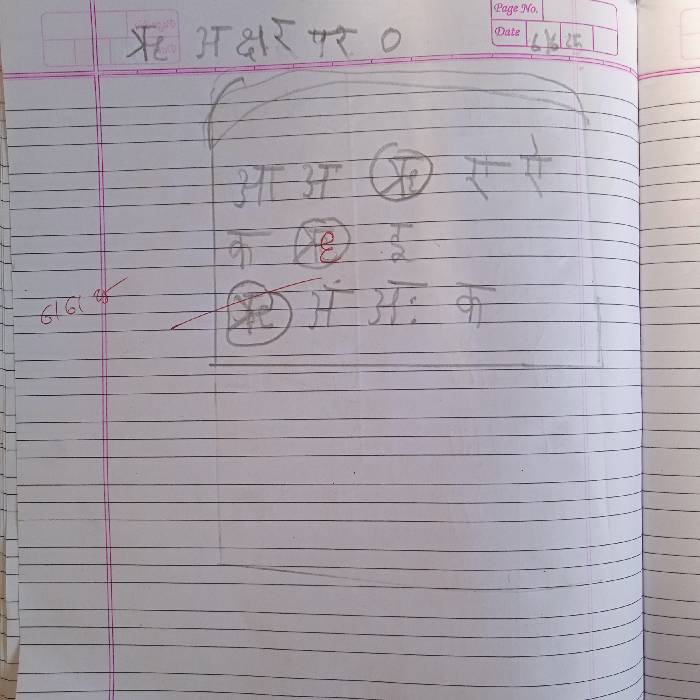 Page No.
Date 6/6/25
ऋ अक्षार पर 0
आ अ ऋ ए ऐ
क ऋ इ
ऋ अं अः क
6/6/25